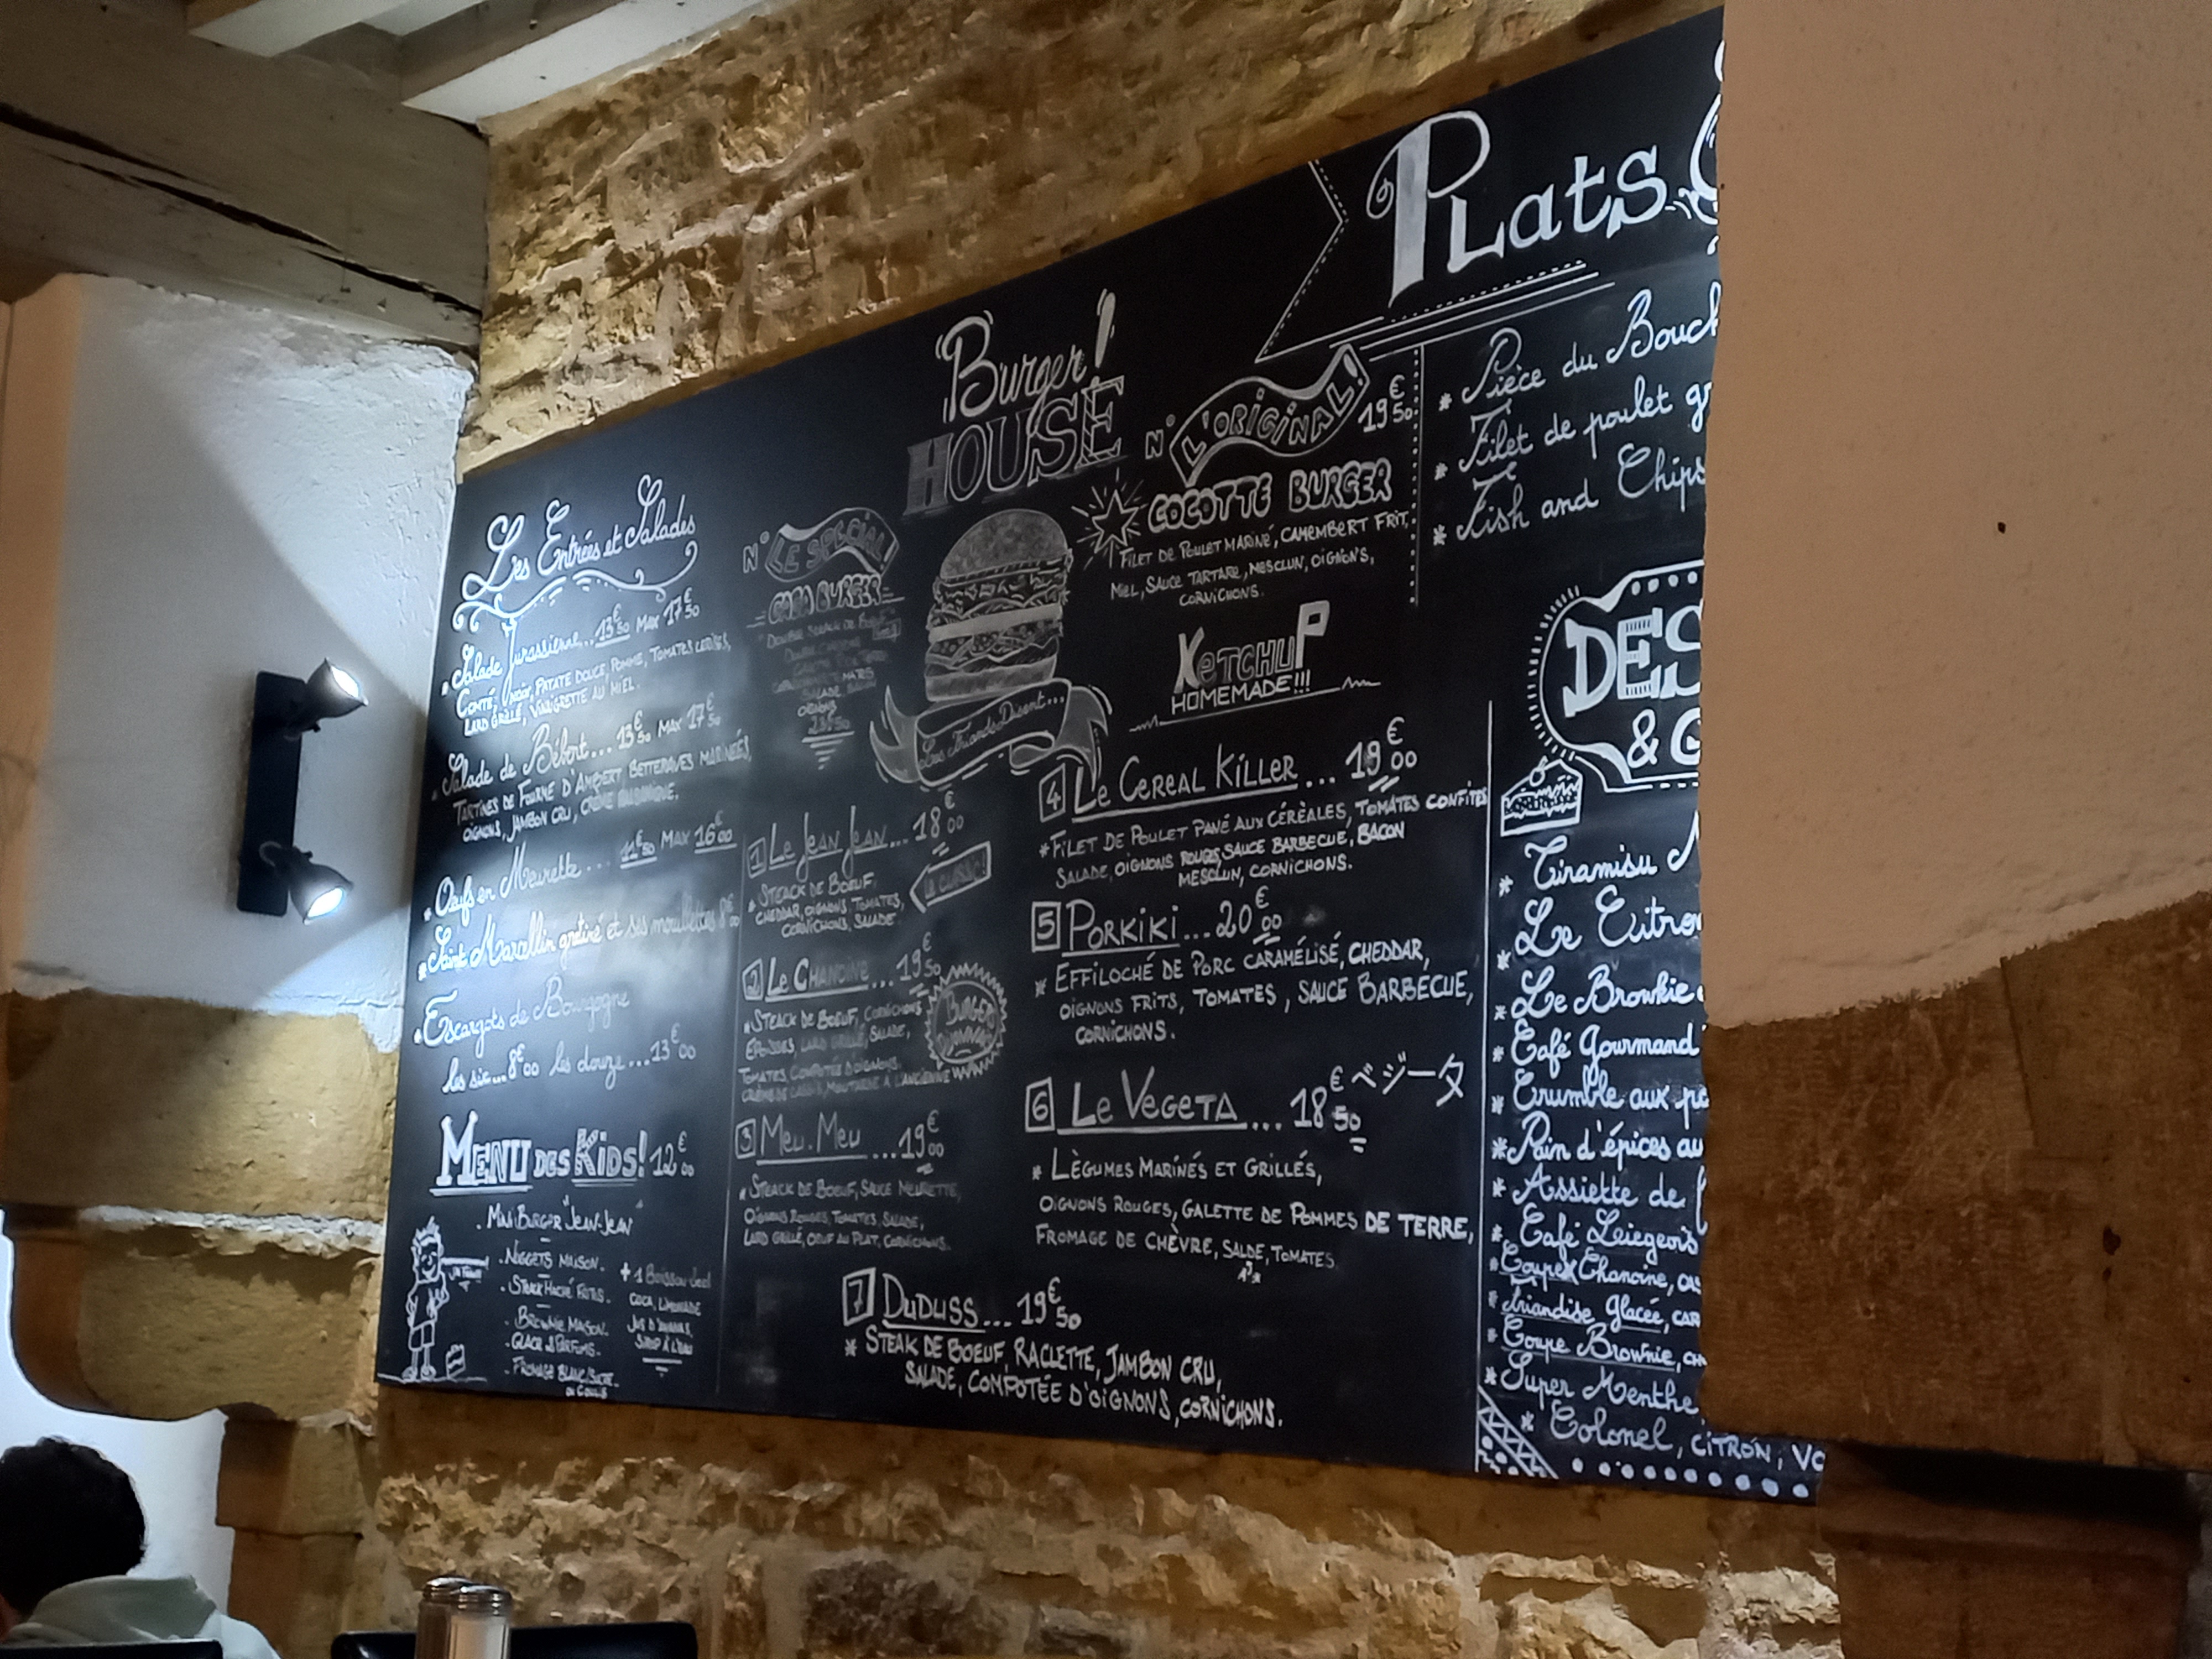 Les Entrées et Salades
* Salade Jurassienne... 13€50 Max 17€50
Comté, noix, Patate douce, Pomme, Tomates cerises,
Lard grillé, Vinaigrette au miel.
* Salade de Bébert... 13€50 Max 17€50
Tartines de Fourme d'Ambert Betteraves marinées,
oignons, Jambon cru, crème balsamique.
* Oeufs en Meurette... 11€50 Max 16€00
* Saint Marcellin gratiné et ses mouillettes 8€00
* Escargots de Bourgogne
les six... 8€00 les douze... 13€00
Menu des Kids! 12€00
- Mini Burger "Jean-Jean"
- Nuggets maison.
- Steack Haché Frites.
- Brownie maison.
- Glace 2 Parfums.
- Fromage Blanc/Sucre
ou coulis
+ 1 Boisson
Coca, Limonade
Jus d'ananas,
Sirop à l'eau
Burger!
House
N° Le Special!
Gaga Burger
Double Steack de Boeuf
Salade
oignons
Les Friands Disent...
1 Le Jean Jean... 18€00
* Steack de Boeuf,
cheddar, oignons, Tomates,
cornichons, Salade.
La classic!
2 Le Chanoine... 19€50
* Steack de Boeuf, cornichons
Époisses, Lard grillé, Salade,
Tomates, Compotée d'oignons.
Crème de Cassis, Moutarde à l'ancienne
Burger
3 Meu. Meu... 19€00
* Steack de Boeuf, Sauce Meurette,
Oignons Rouges, Tomates, Salade,
Lard grillé, Oeuf au plat, cornichons.
N° L'Original! 19€50
Cocotte Burger
Filet de Poulet Mariné, Camembert frit,
Miel, Sauce Tartare, Mesclun, oignons,
cornichons.
Ketchup
Homemade!!!
4 Le Cereal Killer... 19€00
* Filet de Poulet pané aux céréales, tomates confites
Salade, oignons rouges, sauce barbecue, bacon
mesclun, cornichons.
5 Porkiki... 20€00
* Effiloché de porc caramélisé, cheddar,
oignons frits, tomates, sauce Barbecue,
cornichons.
6 Le Vegeta... 18€50 ベジータ
* Lègumes Marinés et Grillés,
Oignons Rouges, Galette de Pommes de terre,
Fromage de Chèvre, Salde, Tomates
7 Duduss... 19€50
* Steak de Boeuf, Raclette, Jambon cru,
Salade, Compotée d'oignons, cornichons.
Plats
* Pièce du Bouch
* Filet de poulet gr
* Fish and Chips
Des
& G
* Tiramisu
* Le Citron
* Le Brownie
* Café Gourmand
* Crumble aux po
* Pain d'épices au
* Assiette de f
* Café Leiegeois
* Coupe Chanoine, cas
* Friandise Glacée, car
* Coupe Brownie, ch
* Super Menthe
* Colonel, citron, vo